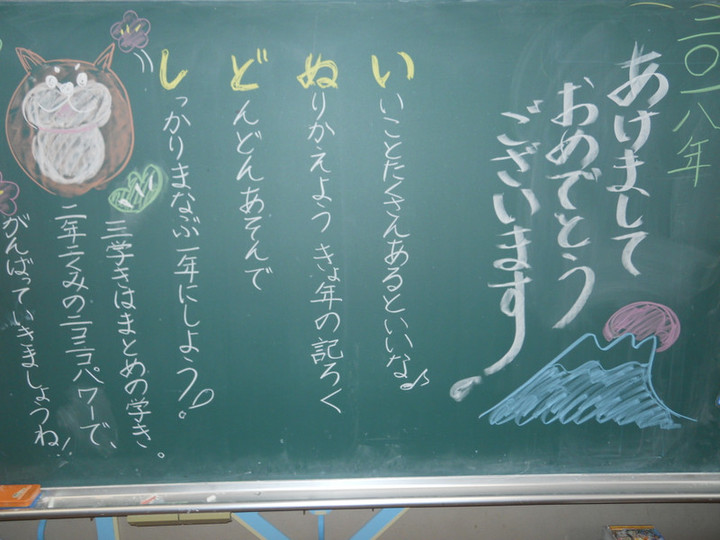 二〇一八年
あけまして
おめでとう
ございます
いいことたくさんあるといいな
ぬりかえよう きょ年の記ろく
どんどんあそんで
しっかりまなぶ一年にしよう!。
三学きはまとめの学き。
二年二くみのニコニコパワーで、
がんばっていきましょうね!